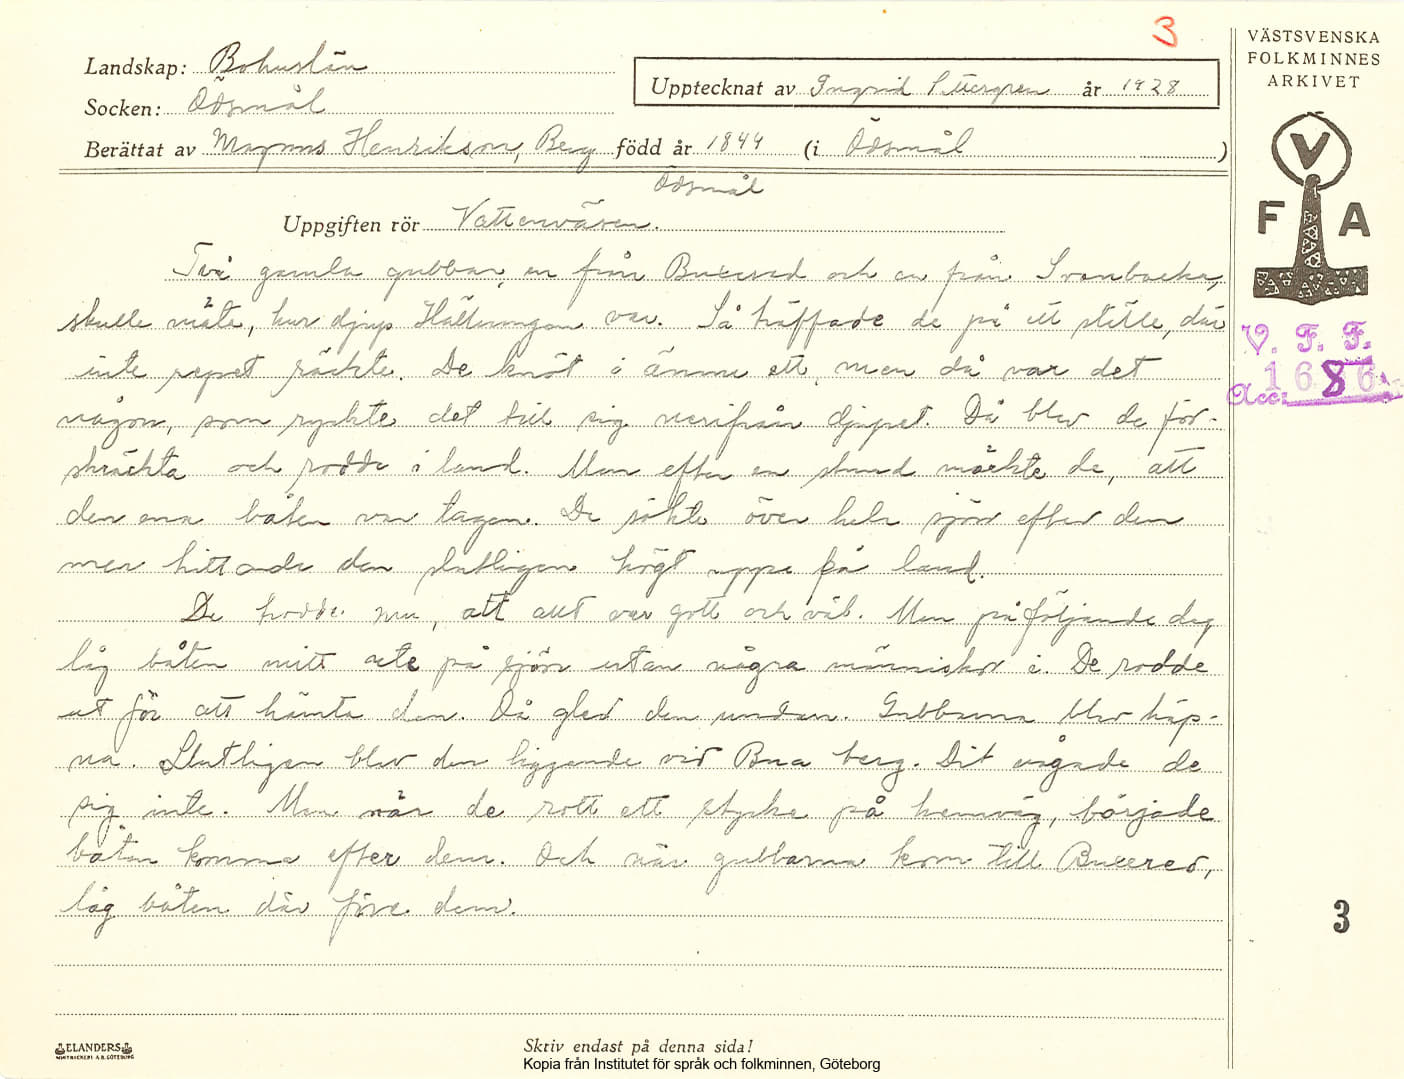 3
VÄSTSVENSKA
FOLKMINNES
ARKIVET
Landskap: Bohuslän
Upptecknat av Ingrid år 1928
Socken: Ödsmål
Berättat av Magnus Henrikson, Berg född år 1844 (i Ödsmål )
Ödsmål
Uppgiften rör Vattenväsen.
V
F A
Två gamla gubbar, en från Buxered och en från Svanbacka,
skulle mäta, hur djup Hältungan var. Så träffade de på ett ställe, där
inte repet räckte. De knöt i ännu ett, men då var det
någon, som ryckte det till sig nerifrån djupet. Då blev de för-
skräckta och rodde i land. Men efter en stund märkte de, att
den ena båten var tagen. De sökte över hela sjön efter den
men hittade den slutligen högt uppe på land.
De trodde nu, att allt var gott och väl. Men på följande dag
låg båten mitt ute på sjön utan några människor i. De rodde
ut för att hämta den. Då gled den undan. Gubbarna blev häp-
na. Slutligen blev den liggande vid Bua berg. Dit vågade de
sig inte. Men när de rott ett stycke på hemväg, började
båten komma efter dem. Och när gubbarna kom till Buxered,
låg båten där före dem.
V. F. F.
Acc: 1686
3
ELANDERS
BOKTRYCKERI A.B. GÖTEBORG
Skriv endast på denna sida!
Kopia från Institutet för språk och folkminnen, Göteborg